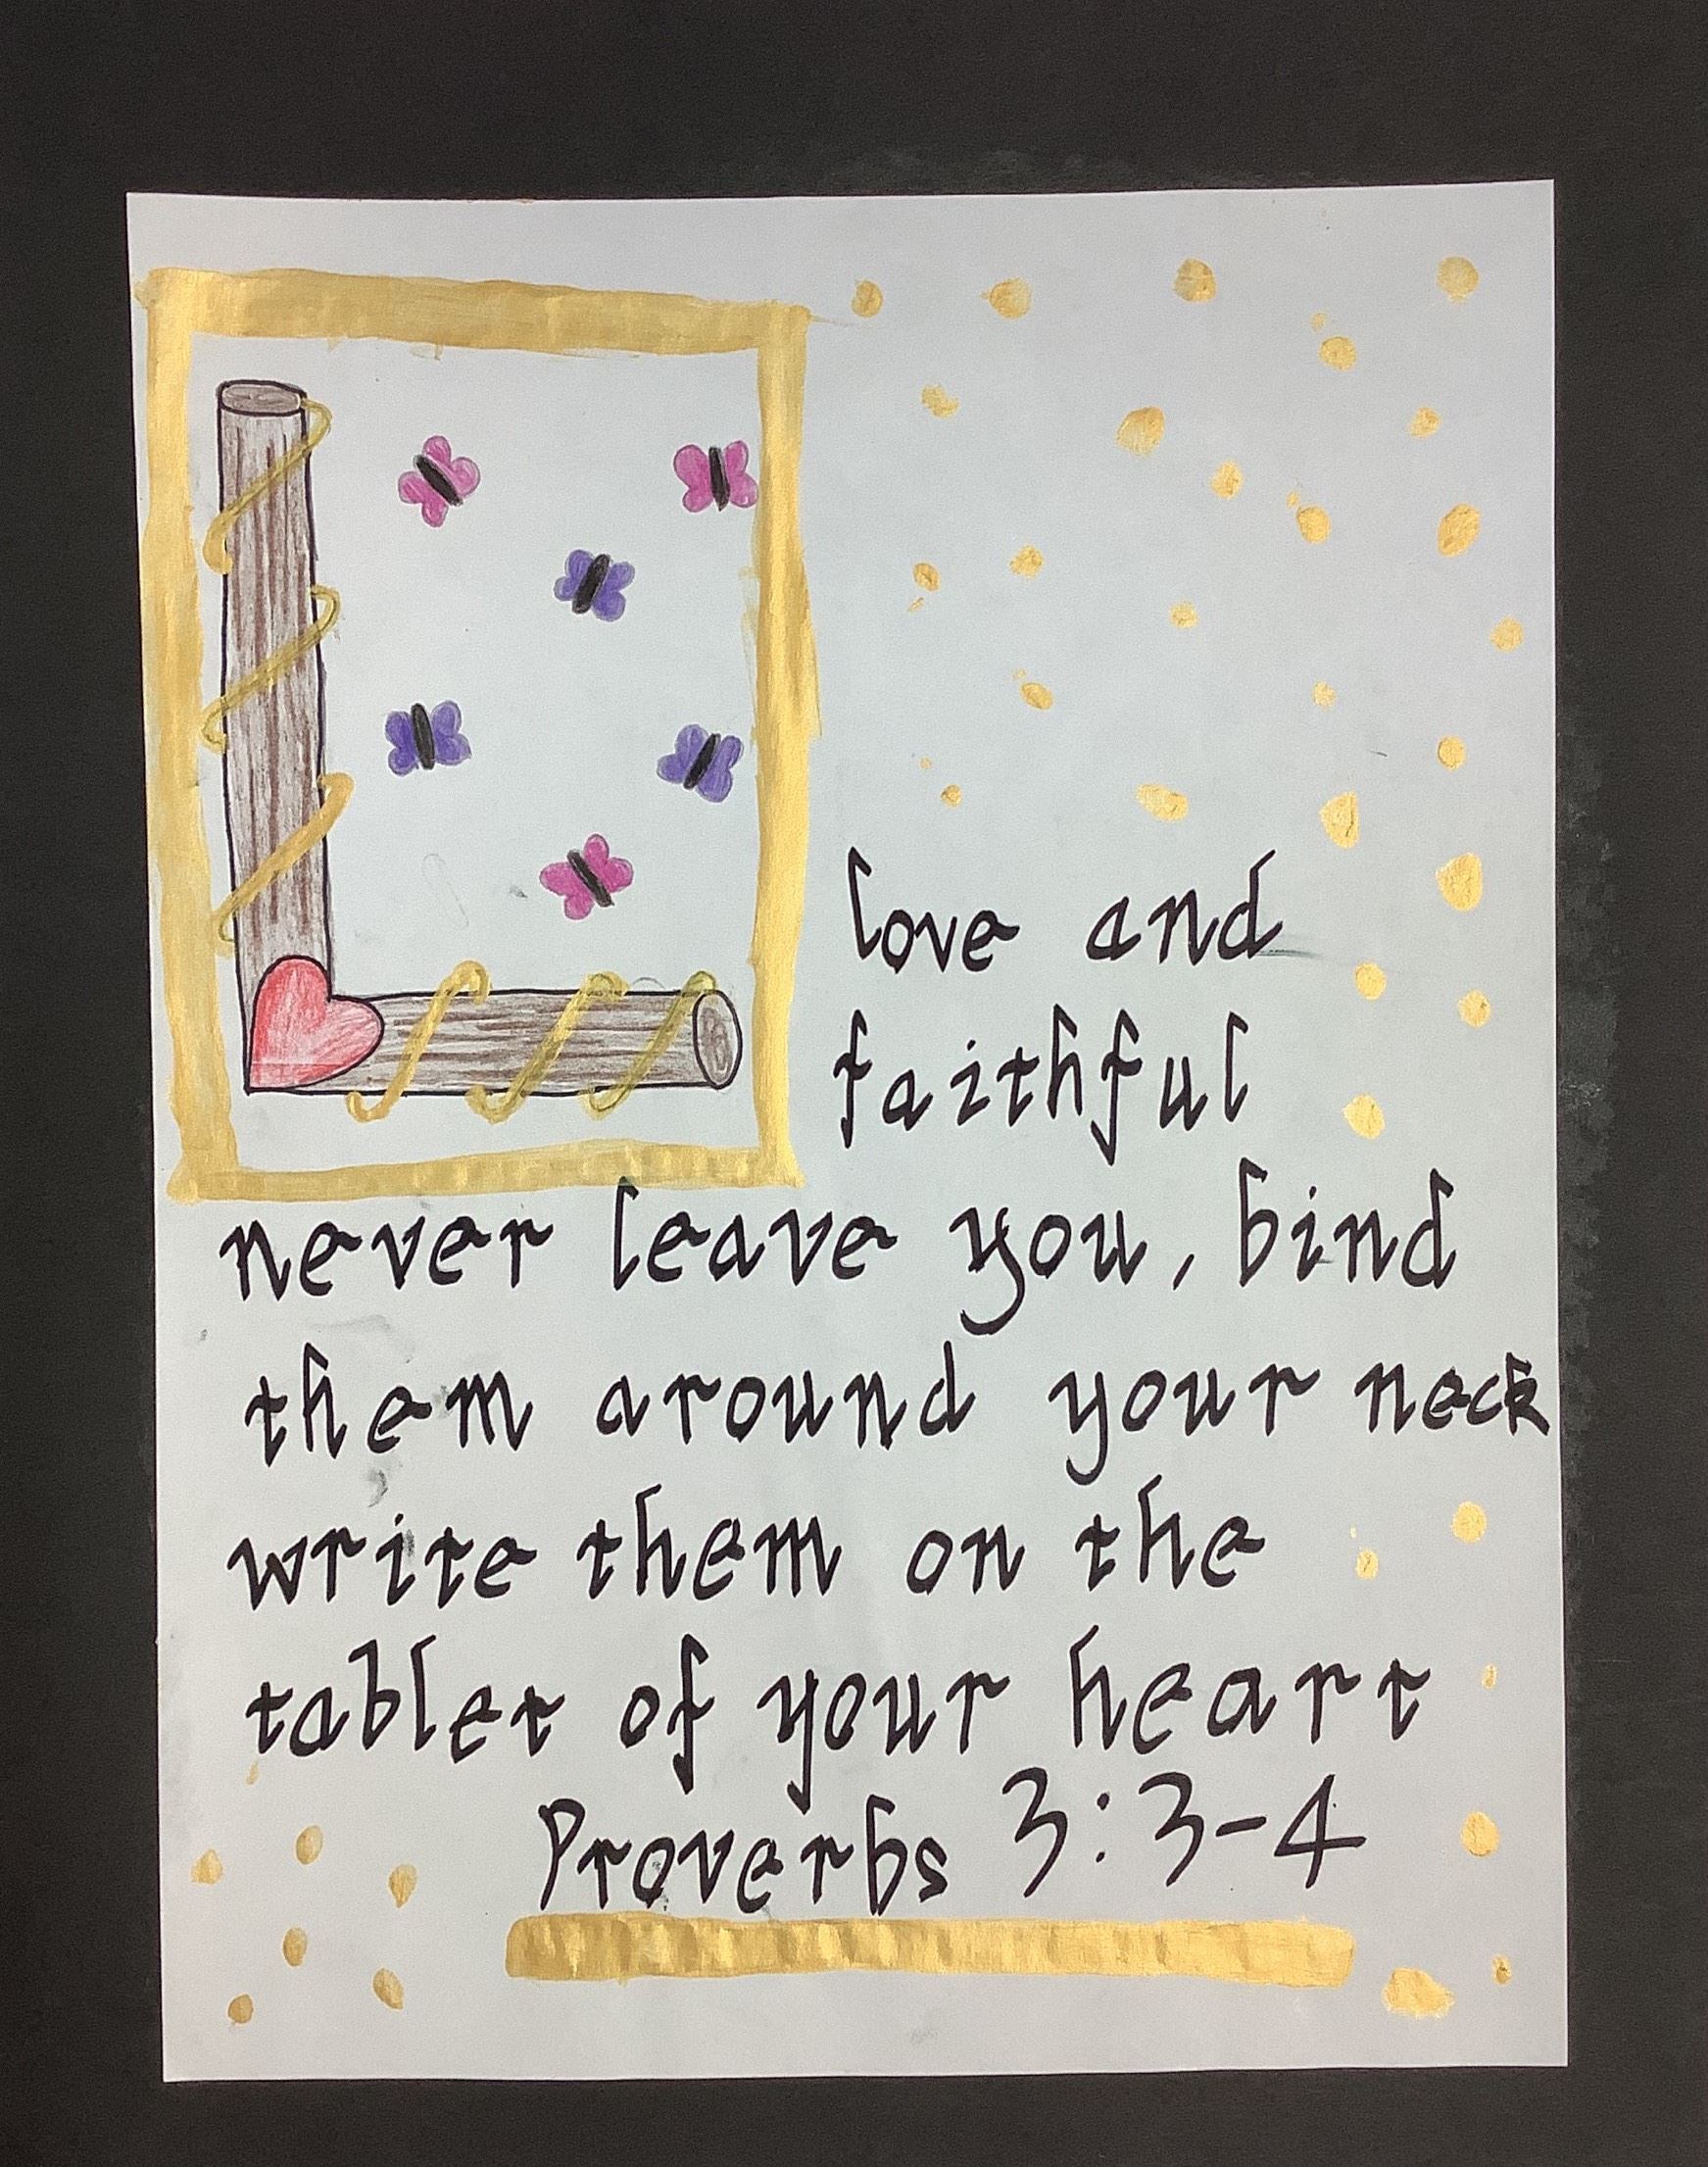 L
love and
faithful
never leave you, bind
them around your neck
write them on the
tablet of your heart
Proverbs 3:3-4